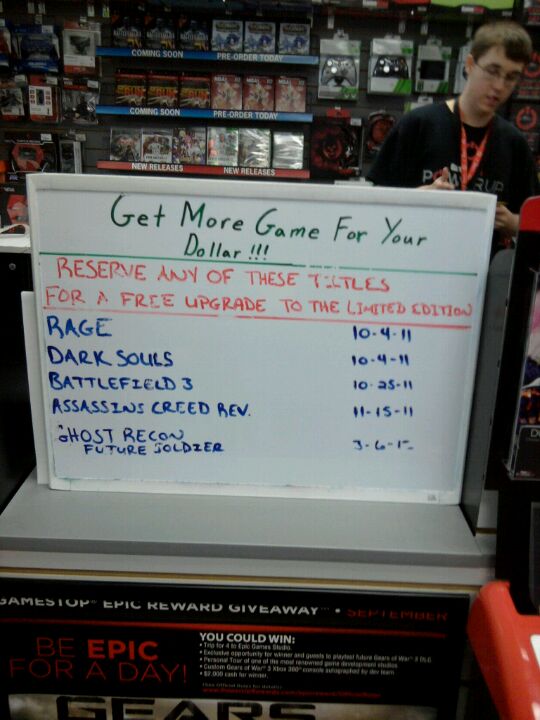 COMING SOON
PRE-ORDER TODAY
COMING SOON
PRE-ORDER TODAY
NEW RELEASES
NEW RELEASES
Get More Game For Your
Dollar !!!
RESERVE ANY OF THESE TITLES
FOR A FREE UPGRADE TO THE LIMITED EDITION
RAGE 10-4-11
DARK SOULS 10-4-11
BATTLEFIELD 3 10-25-11
ASSASSINS CREED REV. 11-15-11
GHOST RECON
FUTURE SOLDIER 3-6-1
GAMESTOP EPIC REWARD GIVEAWAY • SEPTEMBER
BE EPIC
FOR A DAY!
YOU COULD WIN:
• Trip for 4 to Epic Games Studio.
• Exclusive opportunity for winner and guests to playtest future Gears of War 3 DLC
• Personal Tour of one of the most renowned game development studios
• Custom Gears of War 3 Xbox 360 console autographed by dev team
• $2,000 cash for winner.
GEARS